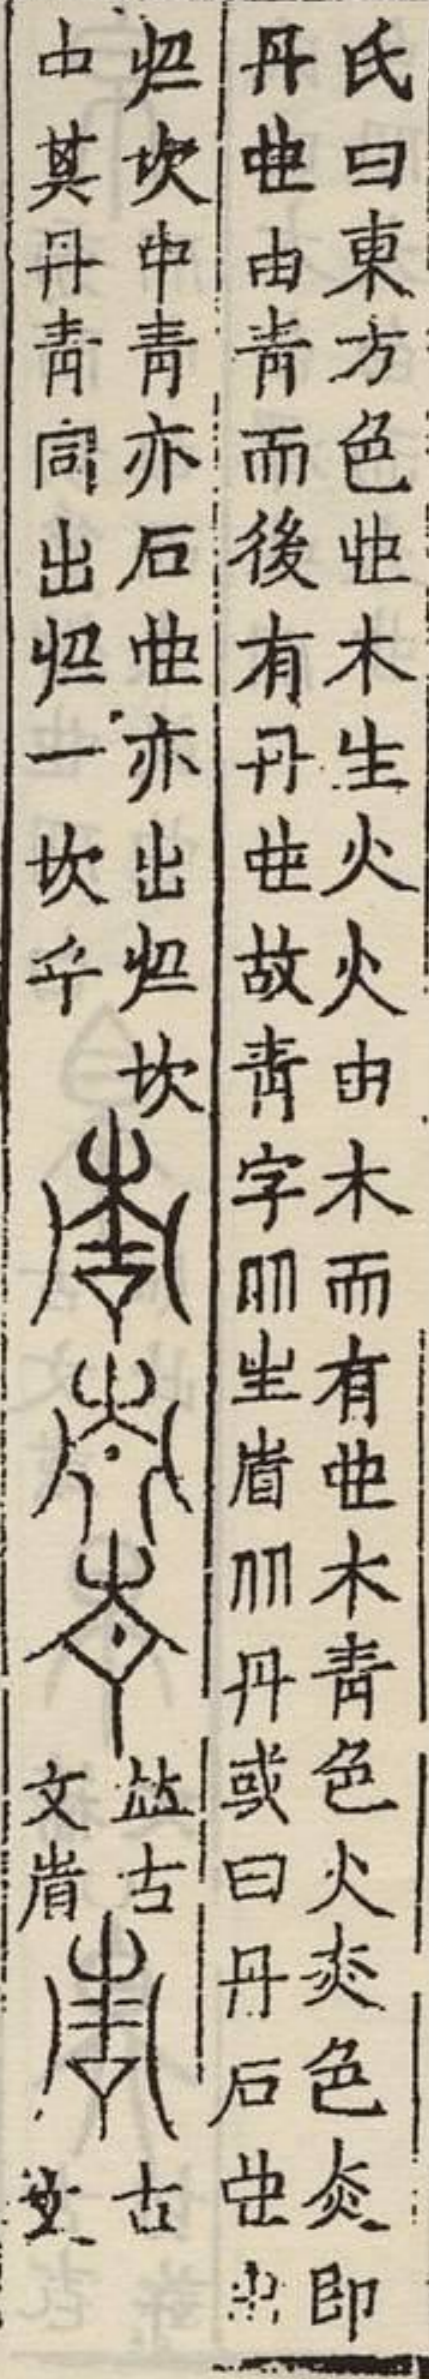 氏曰東方色也木生火火由木而有也木青色火赤色赤即
丹也由青而後有丹也故青字从生省从丹或曰丹石也出
於坎中青亦石也亦出於坎
中其丹青同出於一坎乎
竝古
文省
古